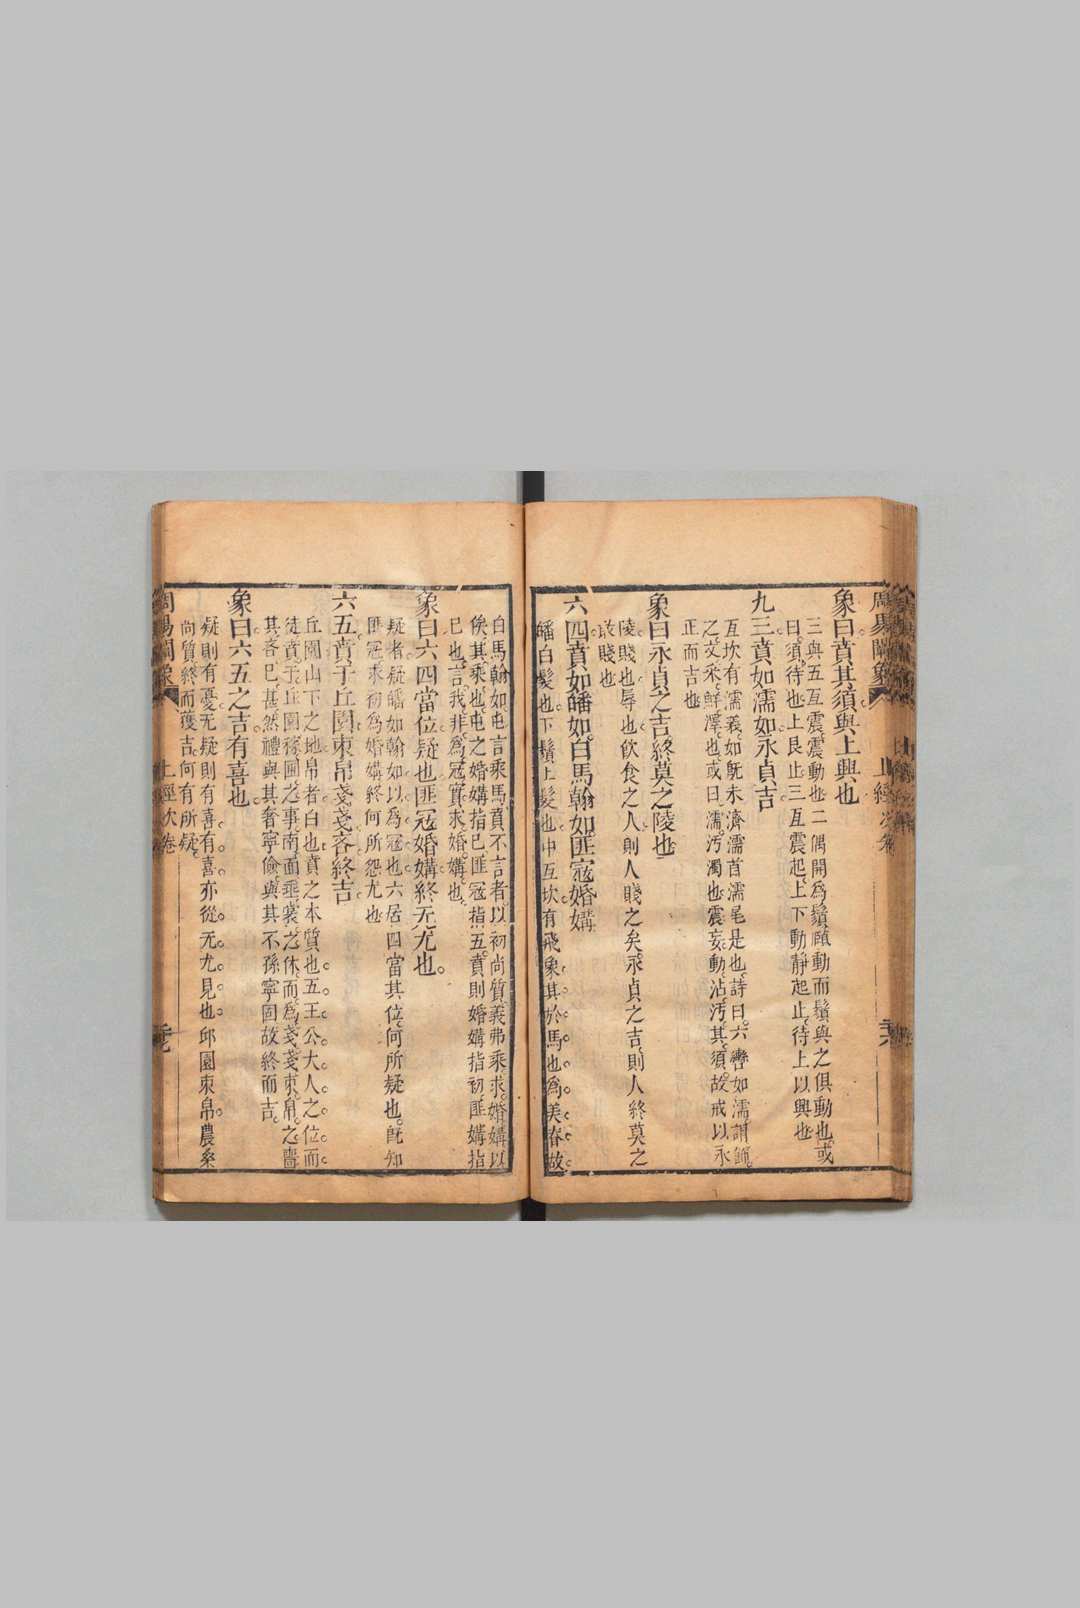 周易闡象 上經次卷
象曰賁其須與上興也
三與五互震震動也二偶開爲鬚頤動而鬚與之俱動也或
曰須待也上艮止三互震起上下動靜起止待上以興也
九三賁如濡如永貞吉
互坎有濡義如旣未濟濡首濡尾是也詩曰六轡如濡謂飾
之文采鮮澤也或曰濡汚濁也震妄動沾汚其須故戒以永
正而吉也
象曰永貞之吉終莫之陵也
陵賤也辱也飲食之人則人賤之矣永貞之吉則人終莫之
敢賤也
六四賁如皤如白馬翰如匪寇婚媾
皤白髮也下鬚上髮也中互坎有飛象其於馬也爲美脊故
白馬翰如屯言乘馬賁不言者以初尚質義弗乘求婚媾以
俟其乘也屯之婚媾指巳匪寇指五賁則婚媾指初匪媾指
巳也言我非爲寇實求婚媾也
象曰六四當位疑也匪寇婚媾終无尤也
疑者疑皤如翰如以爲寇也六居四當其位何所疑也旣知
匪寇來初為婚媾終何所怨尤也
六五賁于丘園束帛戔戔吝終吉
丘園山下之地帛者白也賁之本質也五王公大人之位而
徒賁于丘園稼圃之事南面垂裳之休而爲戔戔束帛之嗇
其吝巳甚然禮與其奢寧儉與其不孫寧固故終而吉
象曰六五之吉有喜也
疑則有憂无疑則有喜有喜亦從无尤見也邱園束帛農桑
尚質終而獲吉何有所疑
周易闡象 上經次卷